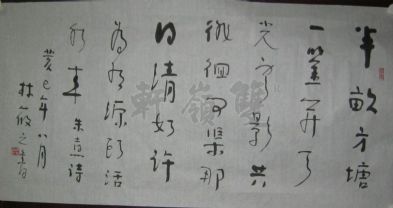 半畝方塘
一鑒開天
光雲影共
徘徊問渠那
得清如許
為有源頭活
水來 朱熹詩
癸巳年八月
林筱之書
雙嶺軒